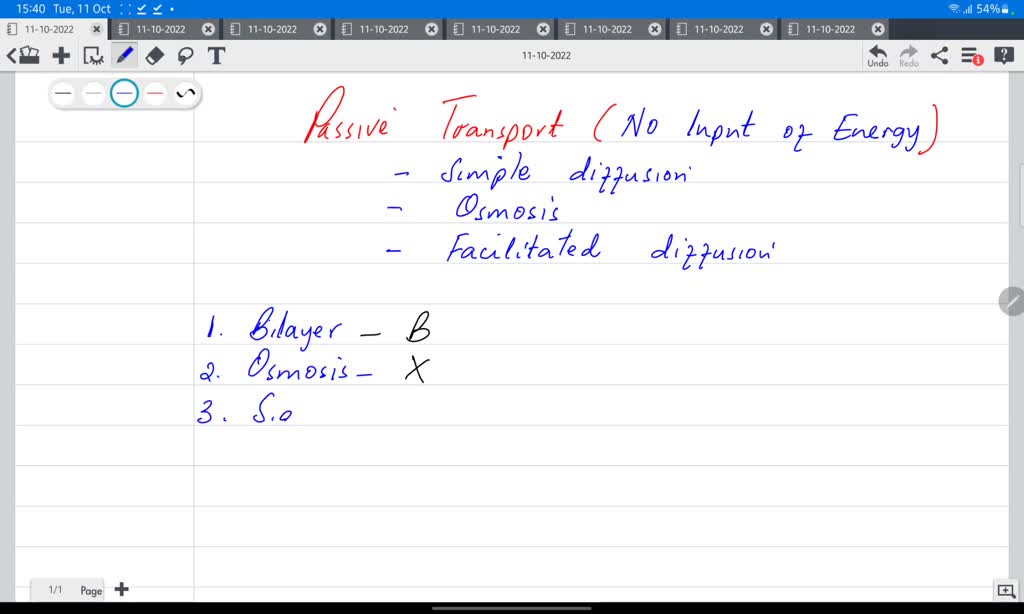 15:40 Tue, 11 Oct 54%
11-10-2022 11-10-2022 11-10-2022 11-10-2022 11-10-2022 11-10-2022 11-10-2022 11-10-2022
T 11-10-2022 Undo Redo 1 ?
Passive Transport (No Input of Energy)
- Simple diffusion
- Osmosis
- Facilitated diffusion
1. Bilayer - B
2. Osmosis - X
3. S.o
1/1 Page